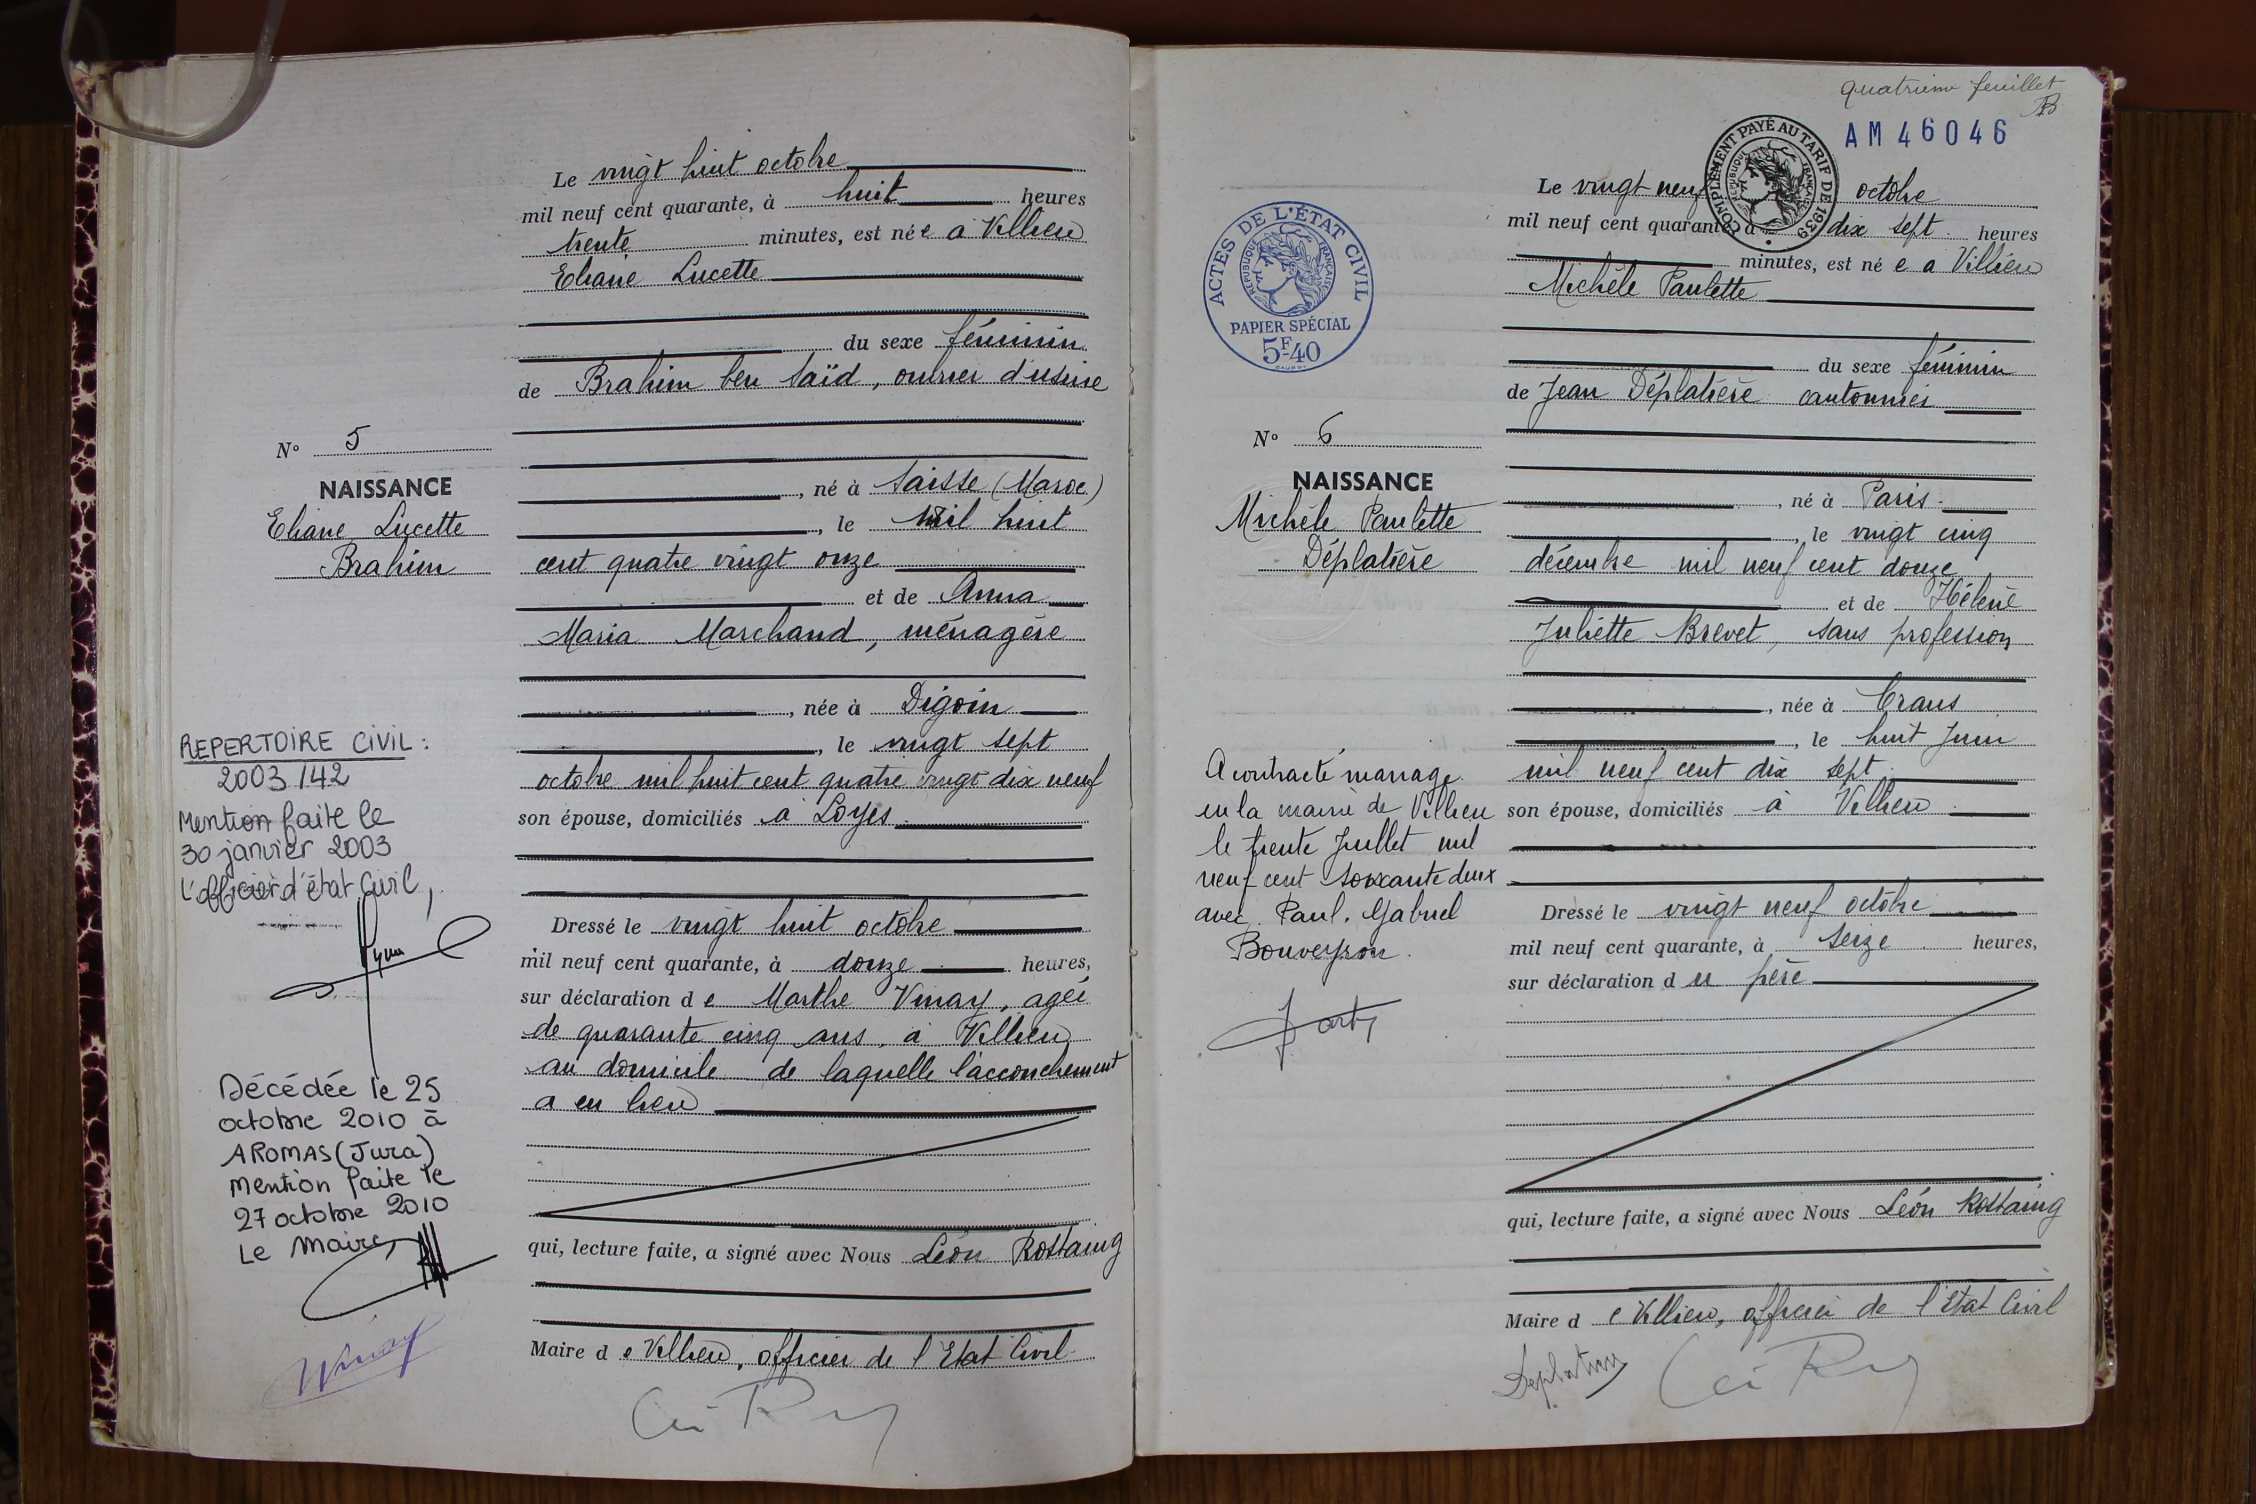 Le vingt huit octobre
mil neuf cent quarante, à huit heures
trente minutes, est née à Villieu
Eliane Lucette
du sexe féminin
de Brahim ben Saïd, ouvrier d'usine
N° 5
NAISSANCE
Eliane Lucette
Brahim
, né à Saisse (Maroc)
, le mil huit
cent quatre vingt onze
et de Anna
Maria Marchand, ménagère
, née à Digoin
, le vingt sept
octobre mil huit cent quatre vingt dix neuf
son épouse, domiciliés à Loyes
REPERTOIRE CIVIL :
2003/42
Mention faite le
30 janvier 2003
L'officier d'état civil,
Dressé le vingt huit octobre
mil neuf cent quarante, à douze heures,
sur déclaration de Marthe Vinay, agée
de quarante cinq ans, à Villieu
au domicile de laquelle l'accouchement
a eu lieu
Décédée le 25
octobre 2010 à
AROMAS (Jura)
Mention faite le
27 octobre 2010
Le Maire,
qui, lecture faite, a signé avec Nous Léon Rostaing
Maire de Villieu, officier de l'Etat Civil
Vinay
quatrième feuillet
AM 46046
COMPLÉMENT PAYÉ AU TARIF DE 1939
RÉPUBLIQUE FRANÇAISE
ACTES DE L'ÉTAT CIVIL
RÉPUBLIQUE FRANÇAISE
PAPIER SPÉCIAL
5F40
Le vingt neuf octobre
mil neuf cent quarante, à dix sept heures
minutes, est née à Villieu
Michèle Paulette
du sexe féminin
de Jean Déplatière cantonnier
N° 6
NAISSANCE
Michèle Paulette
Déplatière
, né à Paris
, le vingt cinq
décembre mil neuf cent douze
et de Hélène
Juliette Brevet, sans profession
, née à Crans
, le huit Juin
mil neuf cent dix sept
son épouse, domiciliés à Villieu
A contracté mariage
en la mairie de Villieu
le trente Juillet mil
neuf cent soixante deux
avec Paul. Gabriel
Bouveyron.
Dressé le vingt neuf octobre
mil neuf cent quarante, à seize heures,
sur déclaration du père
qui, lecture faite, a signé avec Nous Léon Rostaing
Maire de Villieu, officier de l'Etat Civil